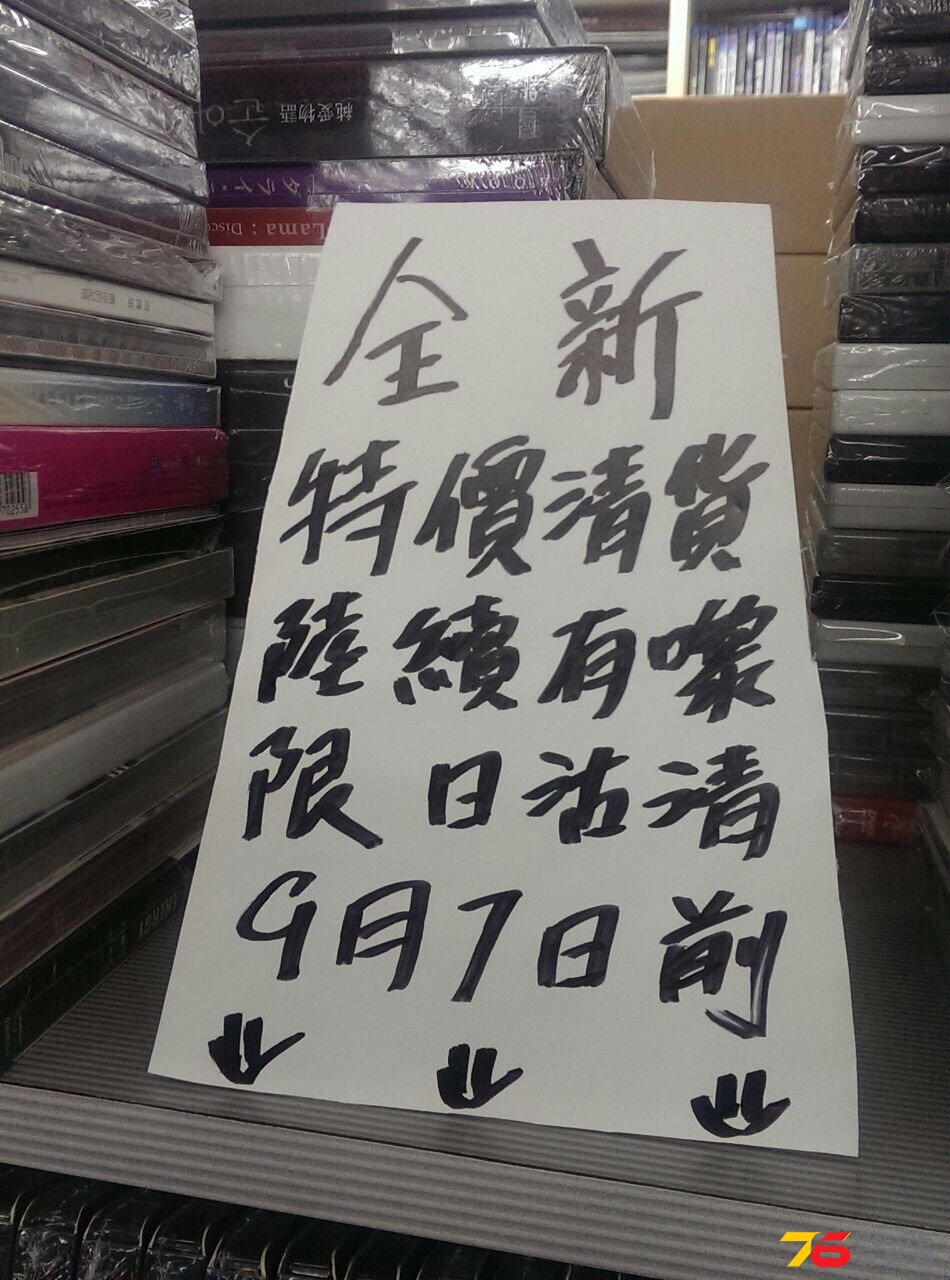 純愛物語
タライ・
Lama : Disco
全新
特價清貨
陸續有嚟
限日沽清
9月7日前
702556
ENERGY
76